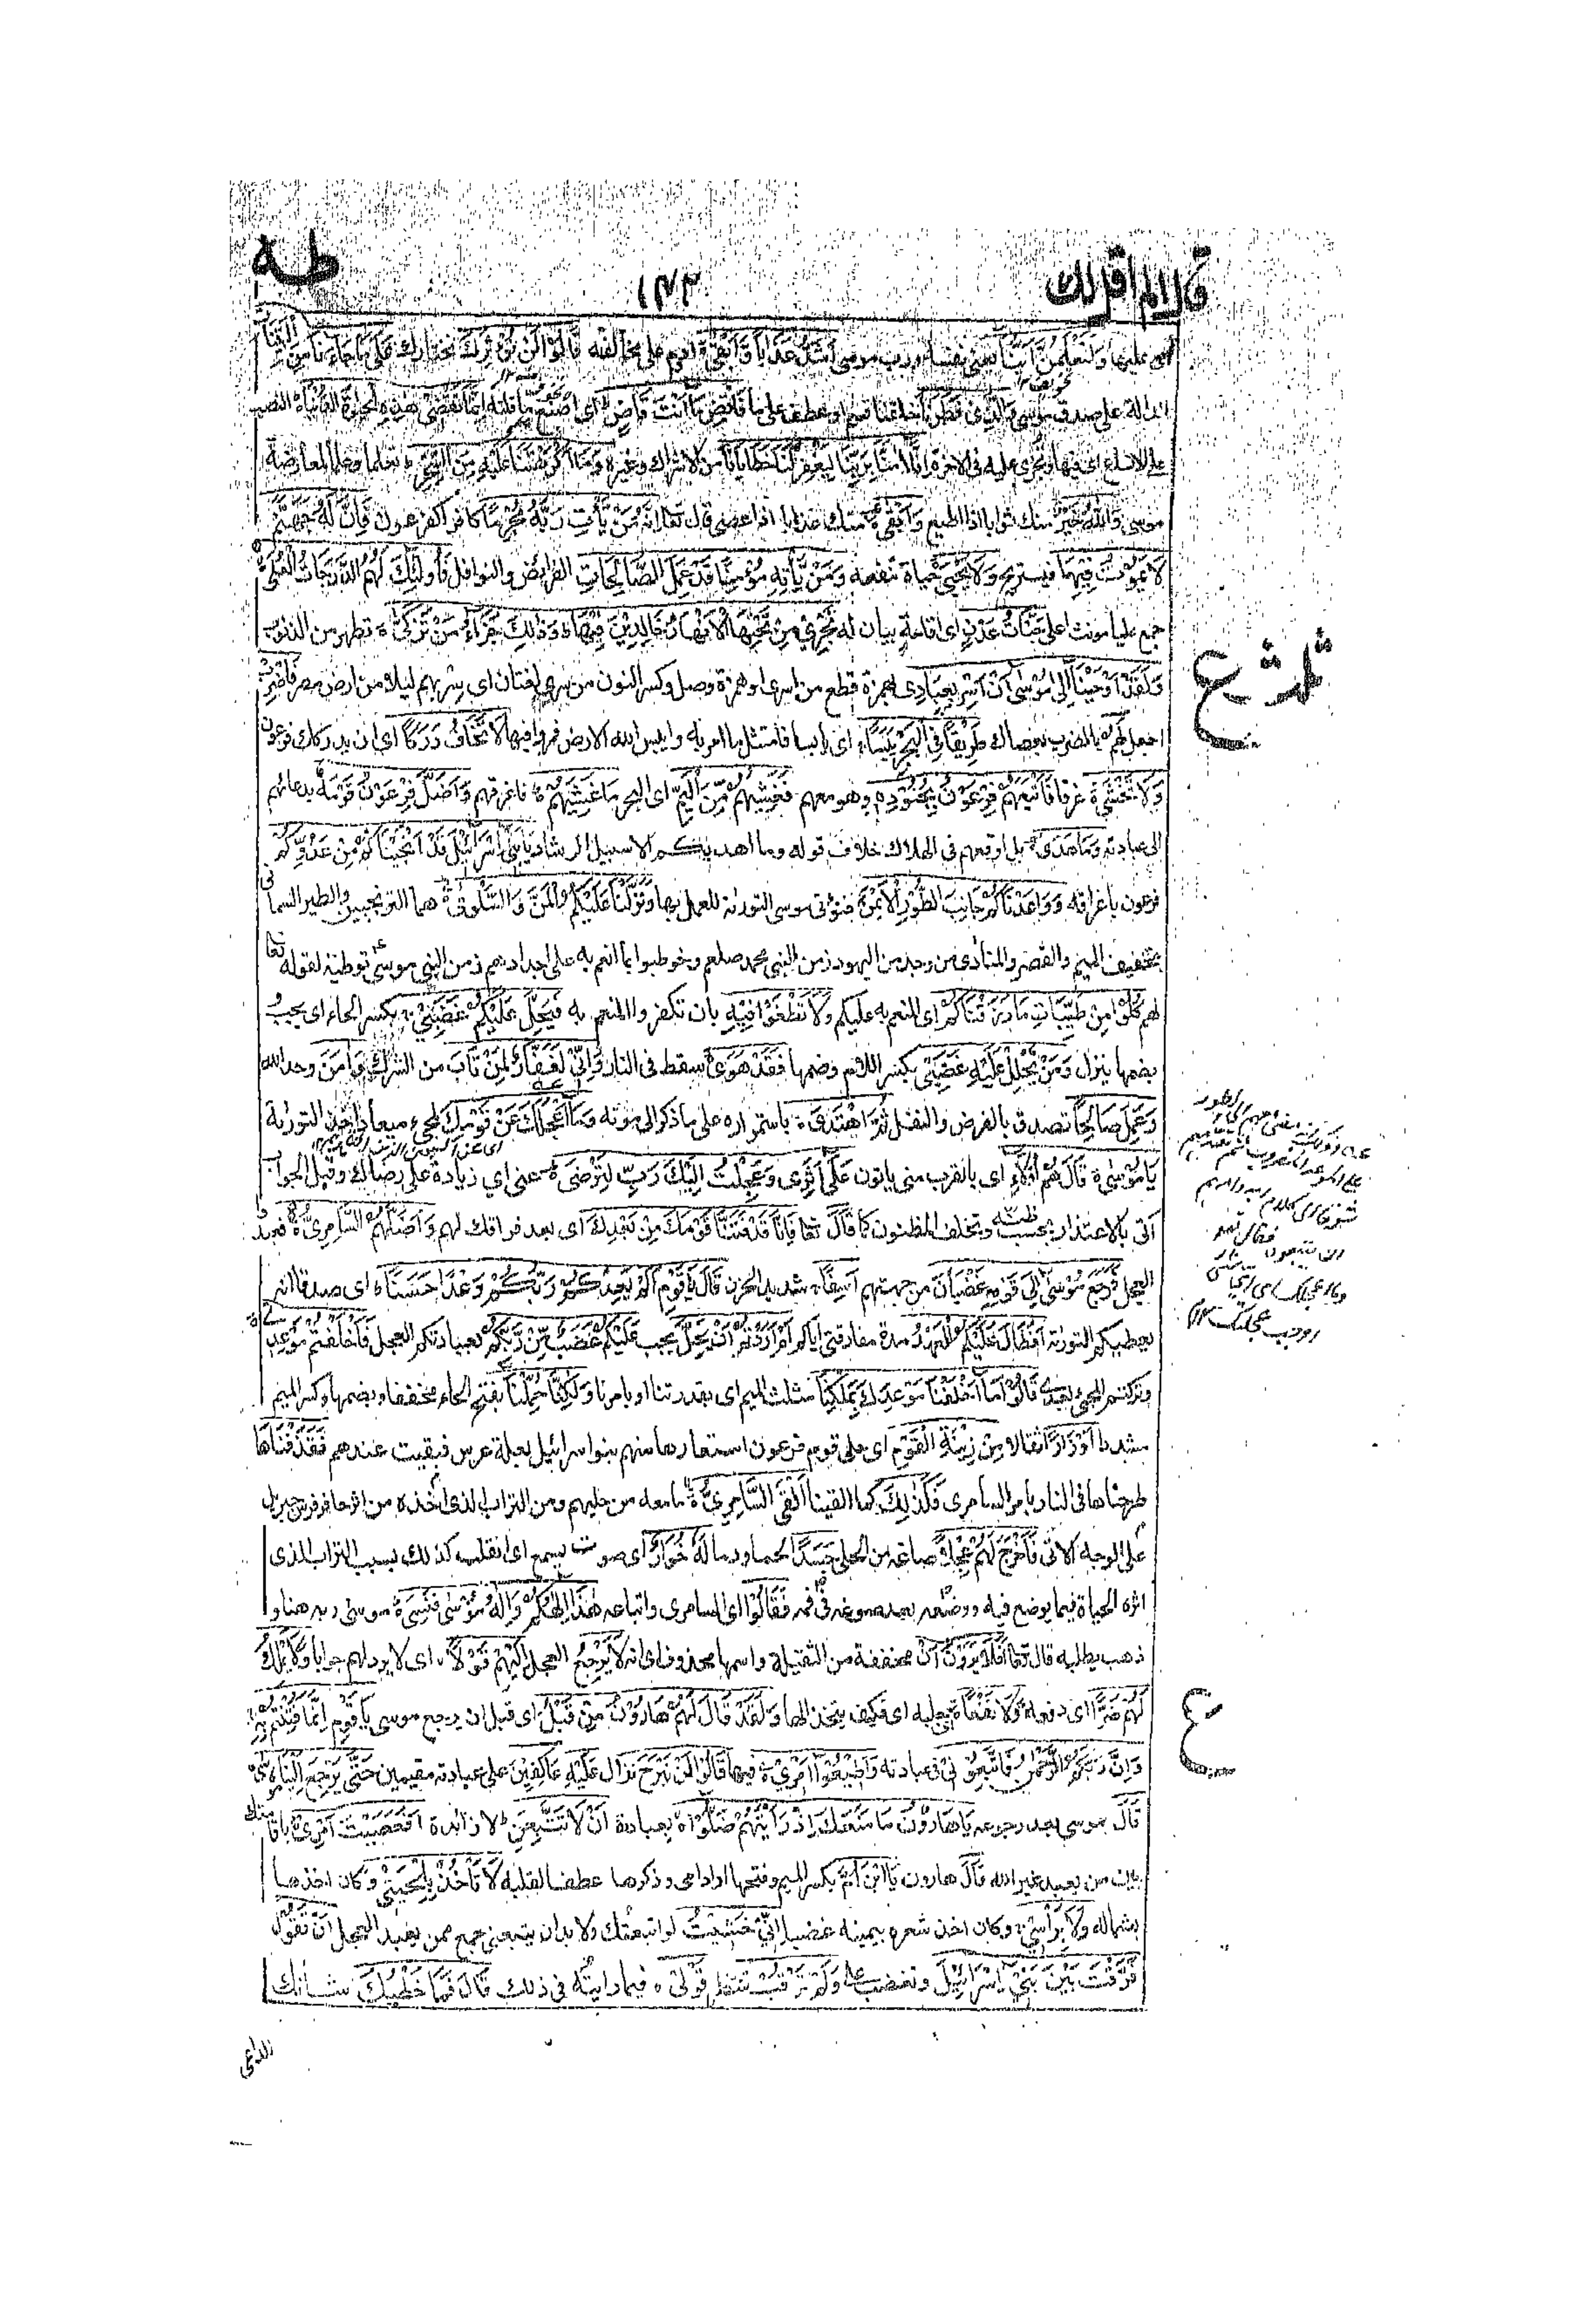 قال الم اقل لك
١٤٣
طه
عليها وَلَتَعْلَمُنَّ أَيُّنَا يعنى نفسه ورب موسى أَشَدُّ عَذَابًا وَّأَبْقٰى ادوم على مخالفته قَالُوْا لَنْ نُّؤْثِرَكَ نختارك عَلٰى مَا جَاءَنَا مِنَ الْبَيِّنَاتِ
الدالة على صدق موسى وَالَّذِيْ فَطَرَنَا خلقنا قسم او عطف على ما فَاقْضِ مَا أَنْتَ قَاضٍ اى اصنع ما قلته إِنَّمَا تَقْضِيْ هٰذِهِ الْحَيٰوةَ الدُّنْيَا النصب
على الاتساع اى فيها وتجزى عليه فى الاخرة إِنَّا اٰمَنَّا بِرَبِّنَا لِيَغْفِرَ لَنَا خَطَايَانَا من الاشراك وغيره وَمَا أَكْرَهْتَنَا عَلَيْهِ مِنَ السِّحْرِ تعلما وعملا لمعارضة
موسى وَاللّٰهُ خَيْرٌ منك ثوابا اذا اطيع وَّأَبْقٰى منك عذابا اذا عصى قال تعالى إِنَّهُ مَنْ يَّأْتِ رَبَّهُ مُجْرِمًا كافرا كفرعون فَإِنَّ لَهُ جَهَنَّمَ
لَا يَمُوْتُ فِيْهَا فيستريح وَلَا يَحْيٰى حياة تنفعه وَمَنْ يَّأْتِهِ مُؤْمِنًا قَدْ عَمِلَ الصَّالِحَاتِ الفرائض والنوافل فَأُولٰئِكَ لَهُمُ الدَّرَجَاتُ الْعُلٰى
جمع عليا مونث اعلى جَنَّاتُ عَدْنٍ اى اقامة بيان له تَجْرِيْ مِنْ تَحْتِهَا الْأَنْهَارُ خَالِدِيْنَ فِيْهَا وَذٰلِكَ جَزَاءُ مَنْ تَزَكّٰى تطهر من الذنوب
وَلَقَدْ أَوْحَيْنَا إِلٰى مُوْسٰى أَنْ أَسْرِ بِعِبَادِيْ بهمزة قطع من اسرى او همزة وصل وكسر النون من سرى لغتان اى سر بهم ليلا من ارض مصر فَاضْرِبْ
اجعل لَهُمْ بالضرب بعصاك طَرِيْقًا فِي الْبَحْرِ يَبَسًا اى يابسا فامتثل ما امر به وايبس الله الارض فمروا فيها لَا تَخَافُ دَرَكًا اى ان يدركك فرعون
وَلَا تَخْشٰى غرقا فَأَتْبَعَهُمْ فِرْعَوْنُ بِجُنُوْدِهِ وهو معهم فَغَشِيَهُمْ مِّنَ الْيَمِّ اى البحر مَا غَشِيَهُمْ فاغرقهم وَأَضَلَّ فِرْعَوْنُ قَوْمَهُ بدعائهم
الى عبادته وَمَا هَدٰى بل اوقعهم فى الهلاك خلاف قوله وما اهديكم الا سبيل الرشاد يَا بَنِيْ إِسْرَائِيْلَ قَدْ أَنْجَيْنَاكُمْ مِنْ عَدُوِّكُمْ
فرعون باغراقه وَوَاعَدْنَاكُمْ جَانِبَ الطُّوْرِ الْأَيْمَنَ فنؤتى موسى التورىة للعمل بها وَنَزَّلْنَا عَلَيْكُمُ الْمَنَّ وَالسَّلْوٰى هما الترنجبين والطير السمانى
بتخفيف الميم والقصر والمنادى من وجد من اليهود زمن النبى محمد صلعم وخوطبوا بما انعم به على اجدادهم زمن النبى موسى توطية لقوله تعا
لهم كُلُوْا مِنْ طَيِّبَاتِ مَا رَزَقْنَاكُمْ اى المنعم به عليكم وَلَا تَطْغَوْا فِيْهِ بان تكفروا المنعم به فَيَحِلَّ عَلَيْكُمْ غَضَبِيْ بكسر الحاء اى يجب و
بضمها ينزل وَمَنْ يَّحْلِلْ عَلَيْهِ غَضَبِيْ بكسر اللام وضمها فَقَدْ هَوٰى سقط فى النار وَإِنِّيْ لَغَفَّارٌ لِّمَنْ تَابَ من الشرك وَاٰمَنَ وحد الله
وَعَمِلَ صَالِحًا تصدق بالفرض والنفل ثُمَّ اهْتَدٰى باستمراره على ما ذكر الى موته وَمَا أَعْجَلَكَ عَنْ قَوْمِكَ لمجىء ميعاد اخذ التورىة
يَا مُوْسٰى قَالَ هُمْ أُولَاءِ اى بالقرب منى ياتون عَلٰى أَثَرِيْ وَعَجِلْتُ إِلَيْكَ رَبِّ لِتَرْضٰى عنى اى زيادة على رضاك وقبل الجواب
اتى بالاعتذار بحسب ظنه وتخلف المظنون كما قَالَ تعا فَإِنَّا قَدْ فَتَنَّا قَوْمَكَ مِنْ بَعْدِكَ اى بعد فراقك لهم وَأَضَلَّهُمُ السَّامِرِيُّ فعبدوا
العجل فَرَجَعَ مُوْسٰى إِلٰى قَوْمِهِ غَضْبَانَ من جهتهم أَسِفًا شديد الحزن قَالَ يَا قَوْمِ أَلَمْ يَعِدْكُمْ رَبُّكُمْ وَعْدًا حَسَنًا اى صدقا انه
يعطيكم التورىة أَفَطَالَ عَلَيْكُمُ الْعَهْدُ مدة مفارقتى اياكم أَمْ أَرَدْتُّمْ أَنْ يَّحِلَّ يجب عَلَيْكُمْ غَضَبٌ مِّنْ رَّبِّكُمْ بعبادتكم العجل فَأَخْلَفْتُمْ مَّوْعِدِيْ
وتركتم المجىء بعدى قَالُوْا مَا أَخْلَفْنَا مَوْعِدَكَ بِمَلْكِنَا مثلث الميم اى بقدرتنا او بامرنا وَلٰكِنَّا حُمِّلْنَا بفتح الحاء مخففا وبضمها وكسر الميم
مشددا أَوْزَارًا اثقالا مِنْ زِيْنَةِ الْقَوْمِ اى حلى قوم فرعون استعارها منهم بنو اسرائيل بعلة عرس فبقيت عندهم فَقَذَفْنَاهَا
طرحناها فى النار بامر السامرى فَكَذٰلِكَ كما القينا أَلْقَى السَّامِرِيُّ ما معه من حليهم ومن التراب الذى اخذه من اثر حافر فرس جبريل
على الوجه الاتى فَأَخْرَجَ لَهُمْ عِجْلًا صاغه من الحلى جَسَدًا لحما ودما لَهُ خُوَارٌ اى صوت يسمع اى انقلب كذلك بسبب التراب الذى
اثره الحياة فيما يوضع فيه ووضعه بعد صوغه فى فمه فَقَالُوْا اى السامرى واتباعه هٰذَا إِلٰهُكُمْ وَإِلٰهُ مُوْسٰى فَنَسِيَ موسى ربه هنا و
ذهب يطلبه قال تعا أَفَلَا يَرَوْنَ أَنْ مخففة من الثقيلة واسمها محذوف اى انه لَا يَرْجِعُ العجل إِلَيْهِمْ قَوْلًا اى لا يرد لهم جوابا وَلَا يَمْلِكُ
لَهُمْ ضَرًّا اى دفعه وَّلَا نَفْعًا اى جلبه اى فكيف يتخذ الها وَلَقَدْ قَالَ لَهُمْ هَارُوْنُ مِنْ قَبْلُ اى قبل ان يرجع موسى يَا قَوْمِ إِنَّمَا فُتِنْتُمْ بِهِ
وَإِنَّ رَبَّكُمُ الرَّحْمٰنُ فَاتَّبِعُوْنِيْ فى عبادته وَأَطِيْعُوْا أَمْرِيْ فيها قَالُوْا لَنْ نَّبْرَحَ نزال عَلَيْهِ عَاكِفِيْنَ على عبادته مقيمين حَتّٰى يَرْجِعَ إِلَيْنَا مُوْسٰى
قَالَ موسى بعد رجوعه يَا هَارُوْنُ مَا مَنَعَكَ إِذْ رَأَيْتَهُمْ ضَلُّوْا بعبادته أَنْ لَّا تَتَّبِعَنِ لا زائدة أَفَعَصَيْتَ أَمْرِيْ باقامتك
بين من يعبد غير الله قَالَ هارون يَا ابْنَ أُمَّ بكسر الميم وفتحها اراد امى وذكرها عطف لقلبه لَا تَأْخُذْ بِلِحْيَتِيْ وكان اخذها
بشماله وَلَا بِرَأْسِيْ وكان اخذ شعره بيمينه غضبا إِنِّيْ خَشِيْتُ لو اتبعتك ولا بد ان يتبعنى جمع ممن يعبد العجل أَنْ تَقُوْلَ
فَرَّقْتَ بَيْنَ بَنِيْ إِسْرَائِيْلَ وتغضب على وَلَمْ تَرْقُبْ تنتظر قَوْلِيْ فيما رايته فى ذلك قَالَ فَمَا خَطْبُكَ شانك
ع
ع